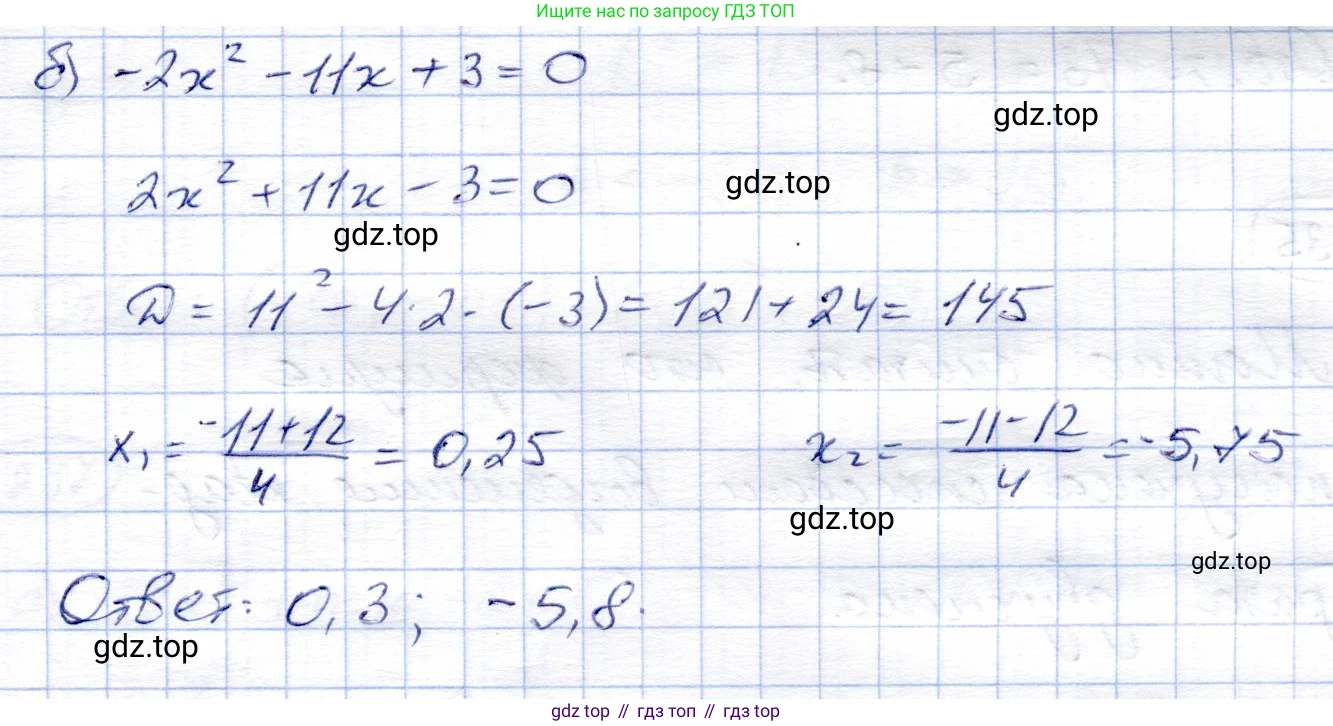 Ищите нас по запросу ГДЗ ТОП
б) -2x² - 11x + 3 = 0
gdz.top
2x² + 11x - 3 = 0
gdz.top
gdz.top
D = 11² - 4·2·(-3) = 121 + 24 = 145
x₁ = (-11+12)/4 = 0,25    x₂ = (-11-12)/4 = -5,75
gdz.top
gdz.top
Ответ: 0,3; -5,8.
gdz.top
gdz top // гдз топ // гдз top